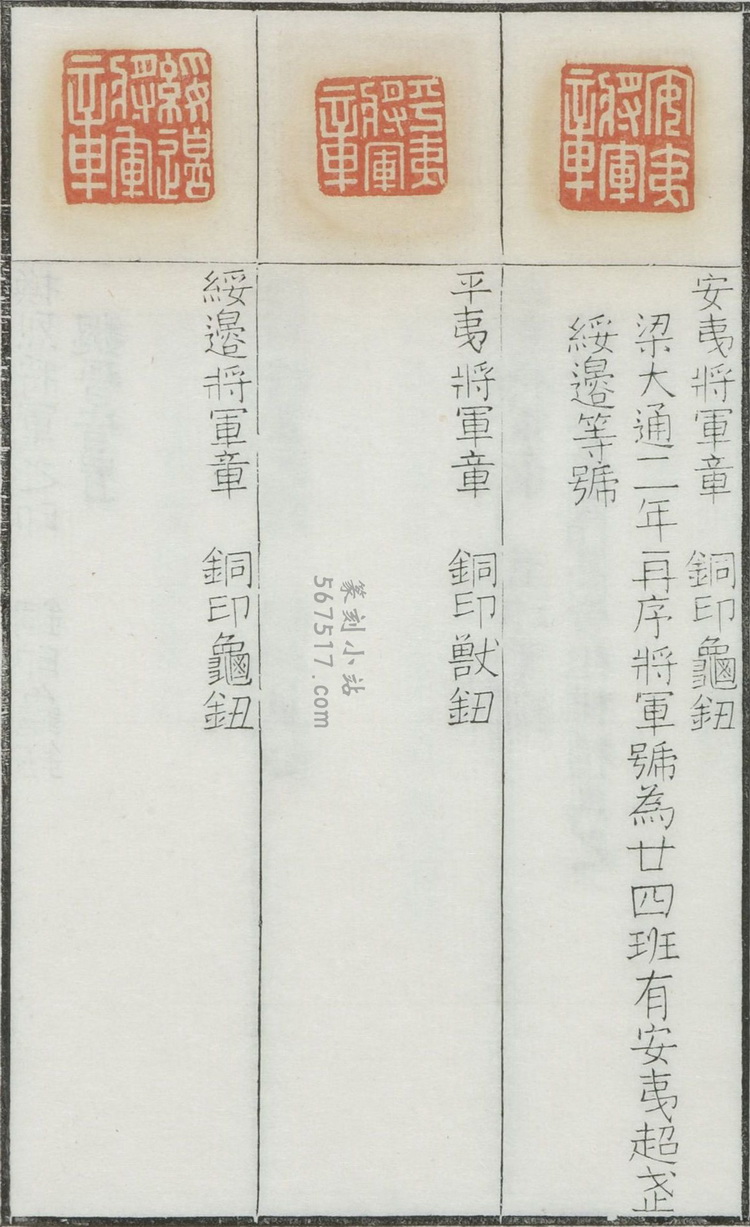 安夷將軍章
安夷將軍章 銅印龜鈕
梁大通二年再序將軍號為廿四班有安夷超武
綏邊等號
平夷將軍章
平夷將軍章 銅印獸鈕
綏邊將軍章
綏邊將軍章 銅印龜鈕
篆刻小站
567517.com